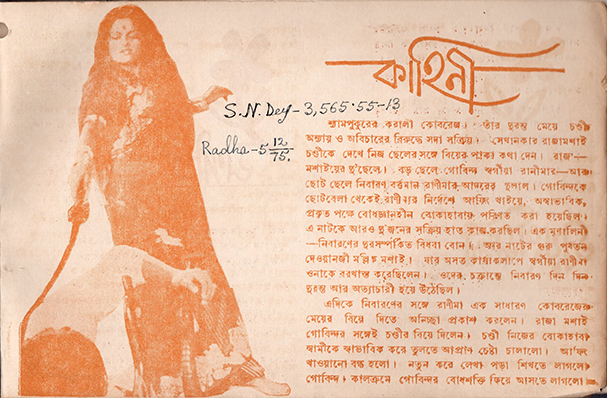 কাহিনী
S.N. Dey - 3,565.55-13
Radha - 5 12/75.
শ্যামপুকুরের করালী কোবরেজ। তাঁর দুরন্ত মেয়ে চণ্ডী
অন্যায় ও অবিচারের বিরুদ্ধে সদা সক্রিয়। সেখানকার রাজামশাই
চণ্ডীকে দেখে নিজ ছেলের সঙ্গে বিয়ের পাকা কথা দেন। রাজা-
মশাইয়ের দু'ছেলে। বড় ছেলে গোবিন্দ স্বর্গীয়া রানীমার—আর
ছোট ছেলে নিবারণ বর্ত্তমান রাণীমার আদরের দুলাল। গোবিন্দকে
ছোটবেলা থেকেই রাণীমার নির্দেশে আফিং খাইয়ে, অস্বাভাবিক,
প্রকৃত পক্ষে বোধজ্ঞানহীন বোকাহাবায় পরিণত করা হয়েছিল।
এ নাটকে আরও দু'জনের সক্রিয় হাত কাজ করছিল। এক মৃণালিনী
—নিবারণের দূরসম্পর্কিত বিধবা বোন। আর নাটের গুরু পূর্বতন
দেওয়ানজী মল্লিক মশাই। যার অসত কার্য্যকলাপে স্বর্গীয়া রাণীমা
ওনাকে বরখাস্ত করেছিলেন। ওদের চক্রান্তে নিবারণ দিন দিন
দুরন্ত আর অত্যাচারী হয়ে উঠেছিল।
এদিকে নিবারণের সঙ্গে রাণীমা এক সাধারণ কোবরেজের
মেয়ের বিয়ে দিতে অনিচ্ছা প্রকাশ করলেন। রাজা মশাই
গোবিন্দর সঙ্গেই চণ্ডীর বিয়ে দিলেন। চণ্ডী নিজের বোকাহাবা
স্বামীকে স্বাভাবিক করে তুলতে আপ্রাণ চেষ্টা চালালো। আফিং
খাওয়ানো বন্ধ হলো। নতুন করে লেখা পড়া শিখতে লাগলো
গোবিন্দ। কালক্রমে গোবিন্দর বোধশক্তি ফিরে আসতে লাগলো।